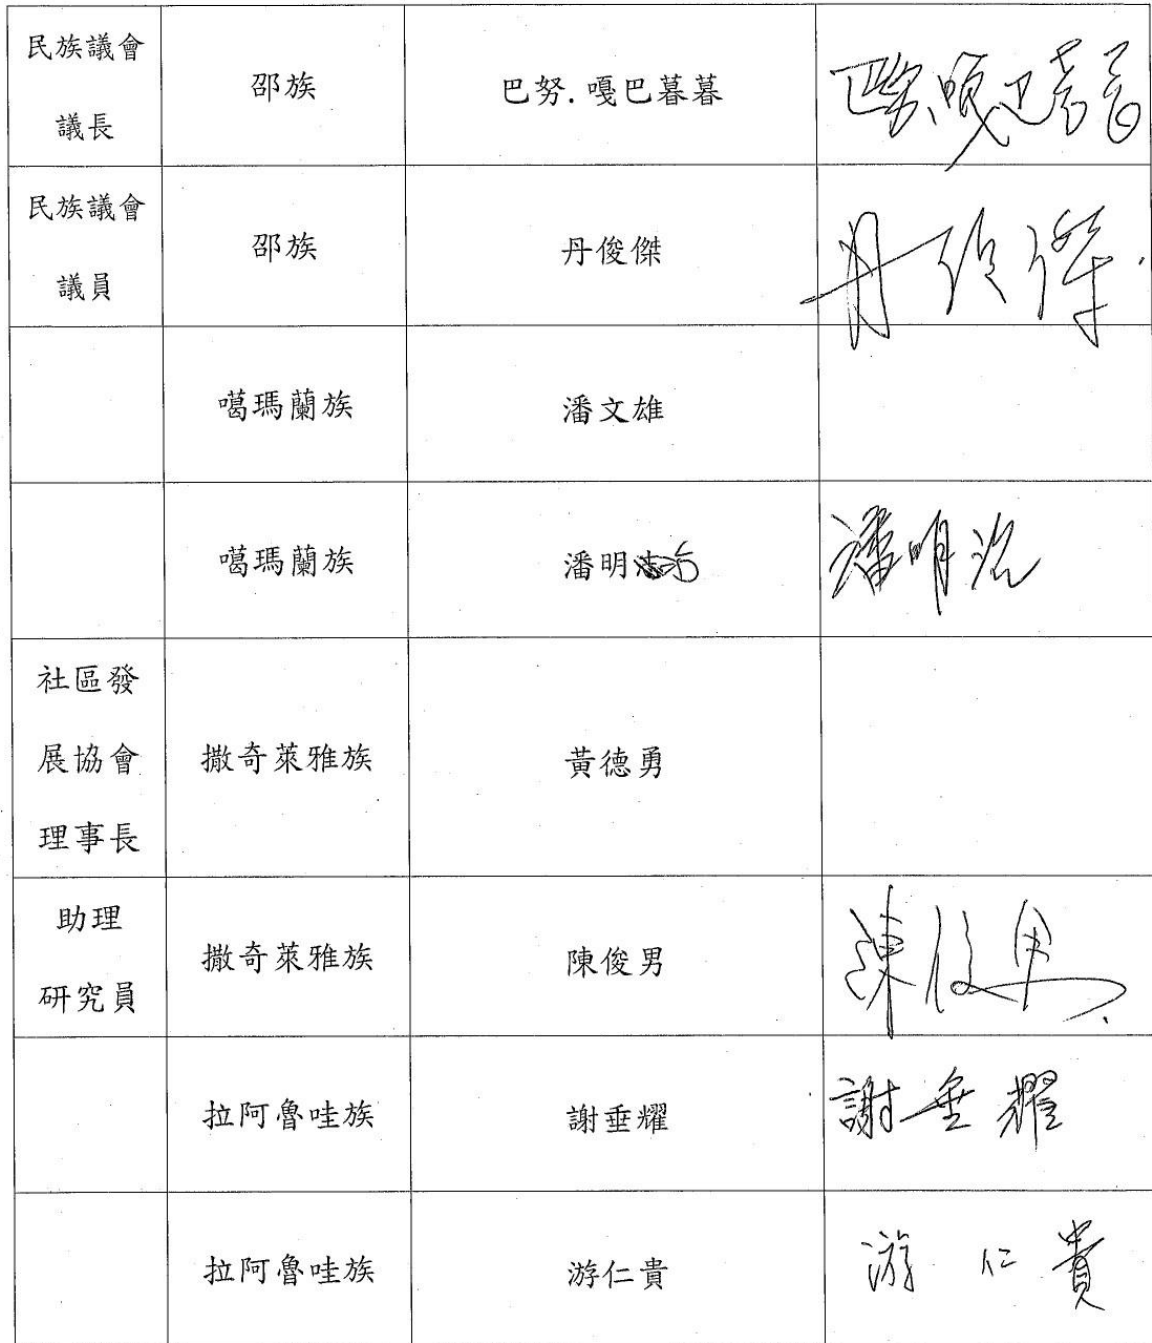 民族議會
議長
邵族
巴努.嘎巴暮暮
巴努.嘎巴暮暮
民族議會
議員
邵族
丹俊傑
丹俊傑
噶瑪蘭族
潘文雄
噶瑪蘭族
潘明
潘明
社區發
展協會
理事長
撒奇萊雅族
黃德勇
助理
研究員
撒奇萊雅族
陳俊男
陳俊男
拉阿魯哇族
謝垂耀
謝垂耀
拉阿魯哇族
游仁貴
游仁貴